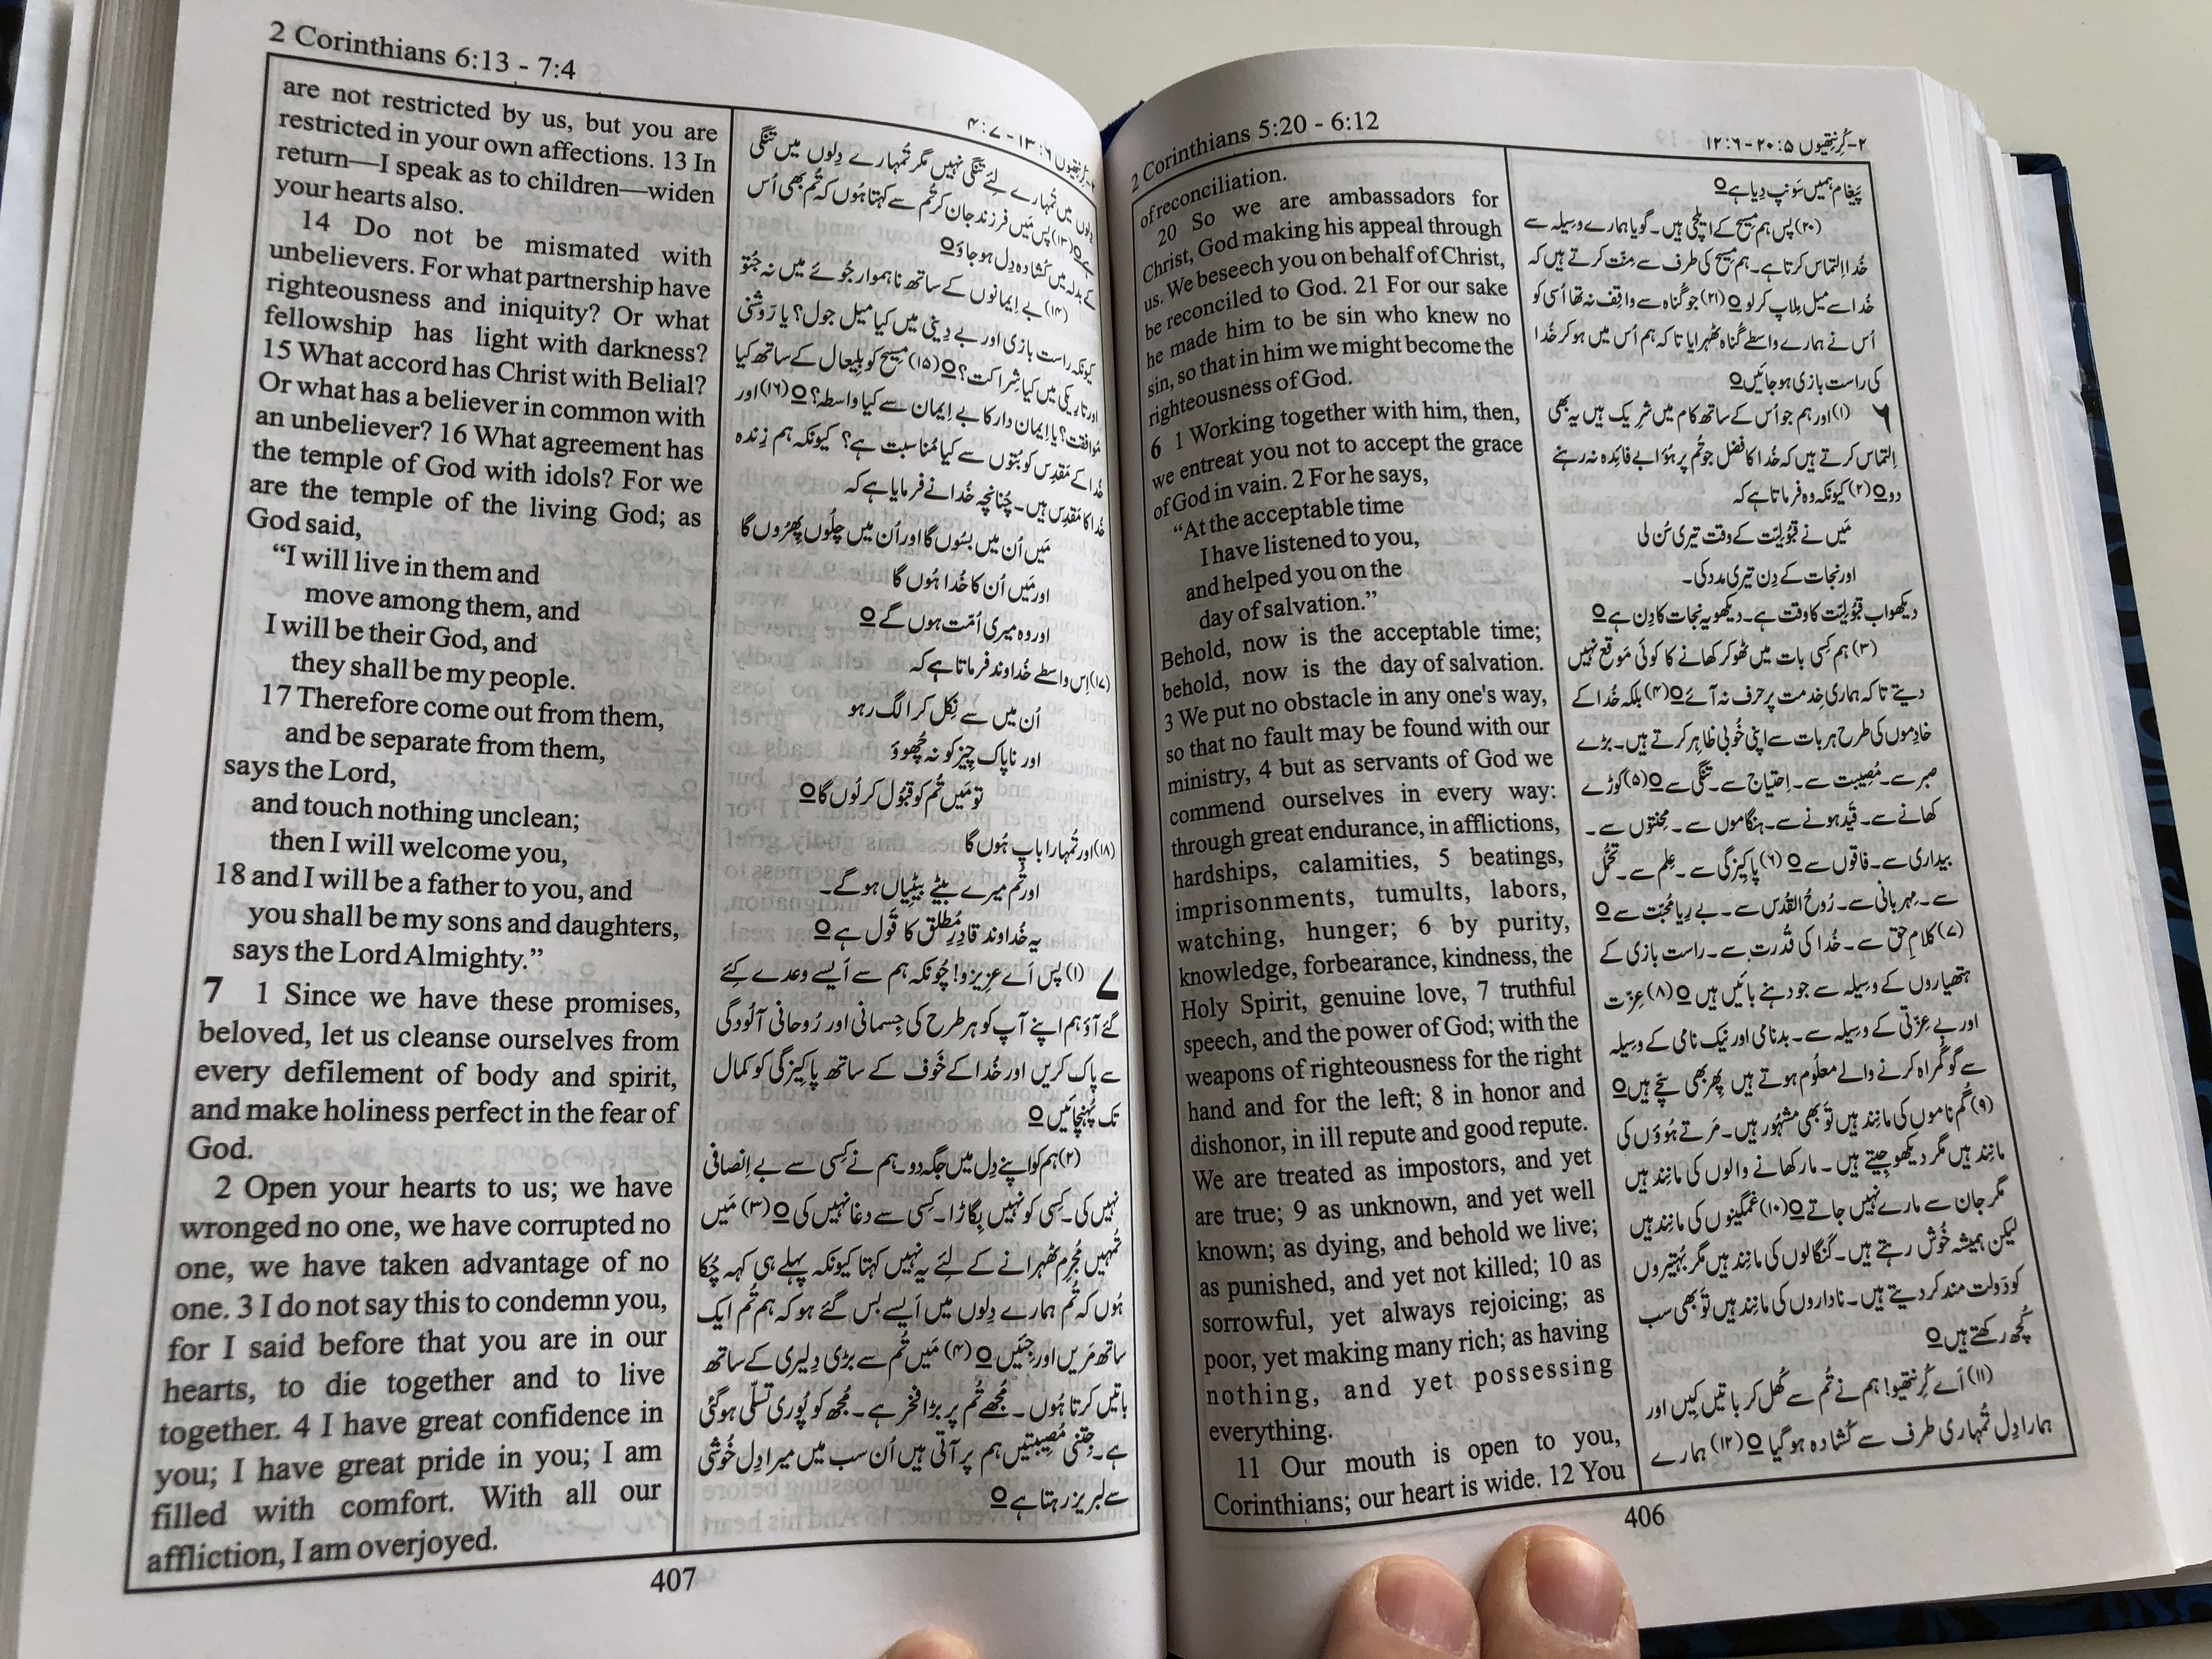 2 Corinthians 5:20 - 6:12
of reconciliation.
20 So we are ambassadors for
Christ, God making his appeal through
us. We beseech you on behalf of Christ,
be reconciled to God. 21 For our sake
he made him to be sin who knew no
sin, so that in him we might become the
righteousness of God.
6 1 Working together with him, then,
we entreat you not to accept the grace
of God in vain. 2 For he says,
“At the acceptable time
I have listened to you,
and helped you on the
day of salvation.”
Behold, now is the acceptable time;
behold, now is the day of salvation.
3 We put no obstacle in any one's way,
so that no fault may be found with our
ministry, 4 but as servants of God we
commend ourselves in every way:
through great endurance, in afflictions,
hardships, calamities, 5 beatings,
imprisonments, tumults, labors,
watching, hunger; 6 by purity,
knowledge, forbearance, kindness, the
Holy Spirit, genuine love, 7 truthful
speech, and the power of God; with the
weapons of righteousness for the right
hand and for the left; 8 in honor and
dishonor, in ill repute and good repute.
We are treated as impostors, and yet
are true; 9 as unknown, and yet well
known; as dying, and behold we live;
as punished, and yet not killed; 10 as
sorrowful, yet always rejoicing; as
poor, yet making many rich; as having
nothing, and yet possessing
everything.
11 Our mouth is open to you,
Corinthians; our heart is wide. 12 You
۲-کُرِنتھیوں ۵:۲۰-۶:۱۲
پَیغام ہمیں سَونپ دِیا ہے o
(۲۰) پس ہم مسِیح کے ایلچی ہیں۔ گویا ہمارے وسِیلہ سے
خُدا اِلتماس کرتا ہے۔ ہم مسِیح کی طرف سے مِنّت کرتے ہیں کہ
خُدا سے میل مِلاپ کر لو o (۲۱) جو گُناہ سے واقِف نہ تھا اُسی کو
اُس نے ہمارے واسطے گُناہ ٹھہرایا تاکہ ہم اُس میں ہو کر خُدا
کی راست بازی ہو جائیں o
۶ (۱) اور ہم جو اُس کے ساتھ کام میں شرِیک ہیں یہ بھی
اِلتماس کرتے ہیں کہ خُدا کا فضل جو تُم پر ہُؤا بے فائِدہ نہ رہنے
دو o (۲) کیونکہ وہ فرماتا ہے کہ
مَیں نے قبُولِیّت کے وقت تیری سُن لی
اور نجات کے دِن تیری مدد کی۔
دیکھو اب قبُولِیّت کا وقت ہے۔ دیکھو یہ نجات کا دِن ہے o
(۳) ہم کِسی بات میں ٹھوکر کھانے کا کوئی مَوقع نہیں
دیتے تاکہ ہماری خِدمت پر حرف نہ آئے o (۴) بلکہ خُدا کے
خادِموں کی طرح ہر بات سے اپنی خُوبی ظاہِر کرتے ہیں۔ بڑے
صبر سے۔ مُصِیبت سے۔ اِحتیاج سے۔ تنگی سے o (۵) کوڑے
کھانے سے۔ قَید ہونے سے۔ ہنگاموں سے۔ مِحنتوں سے۔
بیداری سے۔ فاقوں سے o (۶) پاکِیزگی سے۔ عِلم سے۔ تحمُّل
سے۔ مِہربانی سے۔ رُوحُ القُدس سے۔ بے رِیا مُحبّت سے o
(۷) کلامِ حق سے۔ خُدا کی قُدرت سے۔ راست بازی کے
ہتھیاروں کے وسِیلہ سے جو دہنے بائیں ہیں o (۸) عِزّت
اور بے عِزّتی کے وسِیلہ سے۔ بدنامی اور نیک نامی کے وسِیلہ
سے گو گُمراہ کرنے والے معلُوم ہوتے ہیں پِھر بھی سچّے ہیں o
(۹) گُم ناموں کی مانِند ہیں تَو بھی مشہُور ہیں۔ مَرتے ہُوؤں کی
مانِند ہیں مگر دیکھو جِیتے ہیں۔ مار کھانے والوں کی مانِند ہیں
مگر جان سے مارے نہیں جاتے o (۱۰) غمگِینوں کی مانِند ہیں
لیکن ہمیشہ خُوش رہتے ہیں۔ کنگالوں کی مانِند ہیں مگر بُہتیروں
کو دَولت مند کر دیتے ہیں۔ ناداروں کی مانِند ہیں تَو بھی سب
کُچھ رکھتے ہیں o
(۱۱) اَے کُرِنتھیو! ہم نے تُم سے کُھل کر باتیں کِیں اور
ہمارا دِل تُمہاری طرف سے کُشادہ ہو گیا o (۱۲) ہمارے
406
2 Corinthians 6:13 - 7:4
are not restricted by us, but you are
restricted in your own affections. 13 In
return—I speak as to children—widen
your hearts also.
14 Do not be mismated with
unbelievers. For what partnership have
righteousness and iniquity? Or what
fellowship has light with darkness?
15 What accord has Christ with Belial?
Or what has a believer in common with
an unbeliever? 16 What agreement has
the temple of God with idols? For we
are the temple of the living God; as
God said,
“I will live in them and
move among them, and
I will be their God, and
they shall be my people.
17 Therefore come out from them,
and be separate from them,
says the Lord,
and touch nothing unclean;
then I will welcome you,
18 and I will be a father to you, and
you shall be my sons and daughters,
says the Lord Almighty.”
7 1 Since we have these promises,
beloved, let us cleanse ourselves from
every defilement of body and spirit,
and make holiness perfect in the fear of
God.
2 Open your hearts to us; we have
wronged no one, we have corrupted no
one, we have taken advantage of no
one. 3 I do not say this to condemn you,
for I said before that you are in our
hearts, to die together and to live
together. 4 I have great confidence in
you; I have great pride in you; I am
filled with comfort. With all our
affliction, I am overjoyed.
۲-کُرِنتھیوں ۶:۱۳-۷:۴
دِلوں میں تُمہارے لِئے تنگی نہیں مگر تُمہارے دِلوں میں تنگی
ہے o (۱۳) پس مَیں فرزند جان کر تُم سے کہتا ہُوں کہ تُم بھی اُس
کے بدلہ میں کُشادہ دِل ہو جاؤ o
(۱۴) بے اِیمانوں کے ساتھ ناہموار جُوئے میں نہ جُتو
کیونکہ راست بازی اور بے دِینی میں کیا میل جول؟ یا رَوشنی
اور تارِیکی میں کیا شِراکت؟ o (۱۵) مسِیح کو بِلیعال کے ساتھ کیا
مُوافقت؟ یا اِیمان دار کا بے اِیمان سے کیا واسطہ؟ o (۱۶) اور
خُدا کے مَقدِس کو بُتوں سے کیا مُناسبت ہے؟ کیونکہ ہم زِندہ
خُدا کا مَقدِس ہیں۔ چُنانچہ خُدا نے فرمایا ہے کہ
مَیں اُن میں بسُوں گا اور اُن میں چلُوں پِھرُوں گا
اور مَیں اُن کا خُدا ہُوں گا
اور وہ میری اُمّت ہوں گے o
(۱۷) اِس واسطے خُداوند فرماتا ہے کہ
اُن میں سے نِکل کر الگ رہو
اور ناپاک چِیز کو نہ چُھوؤ
تو مَیں تُم کو قبُول کر لُوں گا o
(۱۸) اور تُمہارا باپ ہُوں گا
اور تُم میرے بیٹے بیٹِیاں ہو گے۔
یہ خُداوند قادِرِ مُطلق کا قَول ہے o
۷ (۱) پس اَے عزِیزو! چُونکہ ہم سے اَیسے وعدے کِئے
گئے آؤ ہم اپنے آپ کو ہر طرح کی جِسمانی اور رُوحانی آلُودگی
سے پاک کریں اور خُدا کے خَوف کے ساتھ پاکِیزگی کو کمال
تک پُہنچائیں o
(۲) ہم کو اپنے دِل میں جگہ دو۔ ہم نے کِسی سے بے اِنصافی
نہیں کی۔ کِسی کو نہیں بِگاڑا۔ کِسی سے دغا نہیں کی o (۳) مَیں
تُمہیں مُجرِم ٹھہرانے کے لِئے یہ نہیں کہتا کیونکہ پہلے ہی کہہ چُکا
ہُوں کہ تُم ہمارے دِلوں میں اَیسے بس گئے ہو کہ ہم تُم ایک
ساتھ مَریں اور جِئیں o (۴) مَیں تُم سے بڑی دِلیری کے ساتھ
باتیں کرتا ہُوں۔ مُجھے تُم پر بڑا فخر ہے۔ مُجھ کو پُوری تسلّی ہو گئی
ہے۔ جِتنی مُصِیبتیں ہم پر آتی ہیں اُن سب میں میرا دِل خُوشی
سے لبریز رہتا ہے o
407